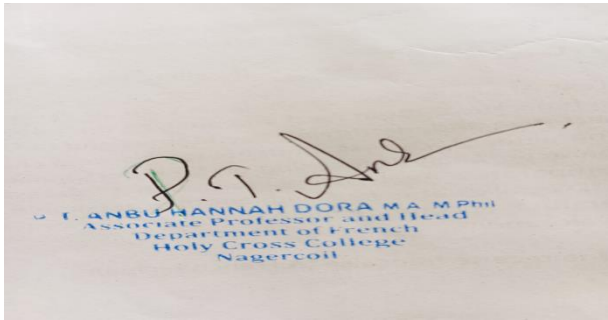 P. T. Anb
T. ANBU HANNAH DORA M.A. M.Phil
Associate Professor and Head
Department of French
Holy Cross College
Nagercoil